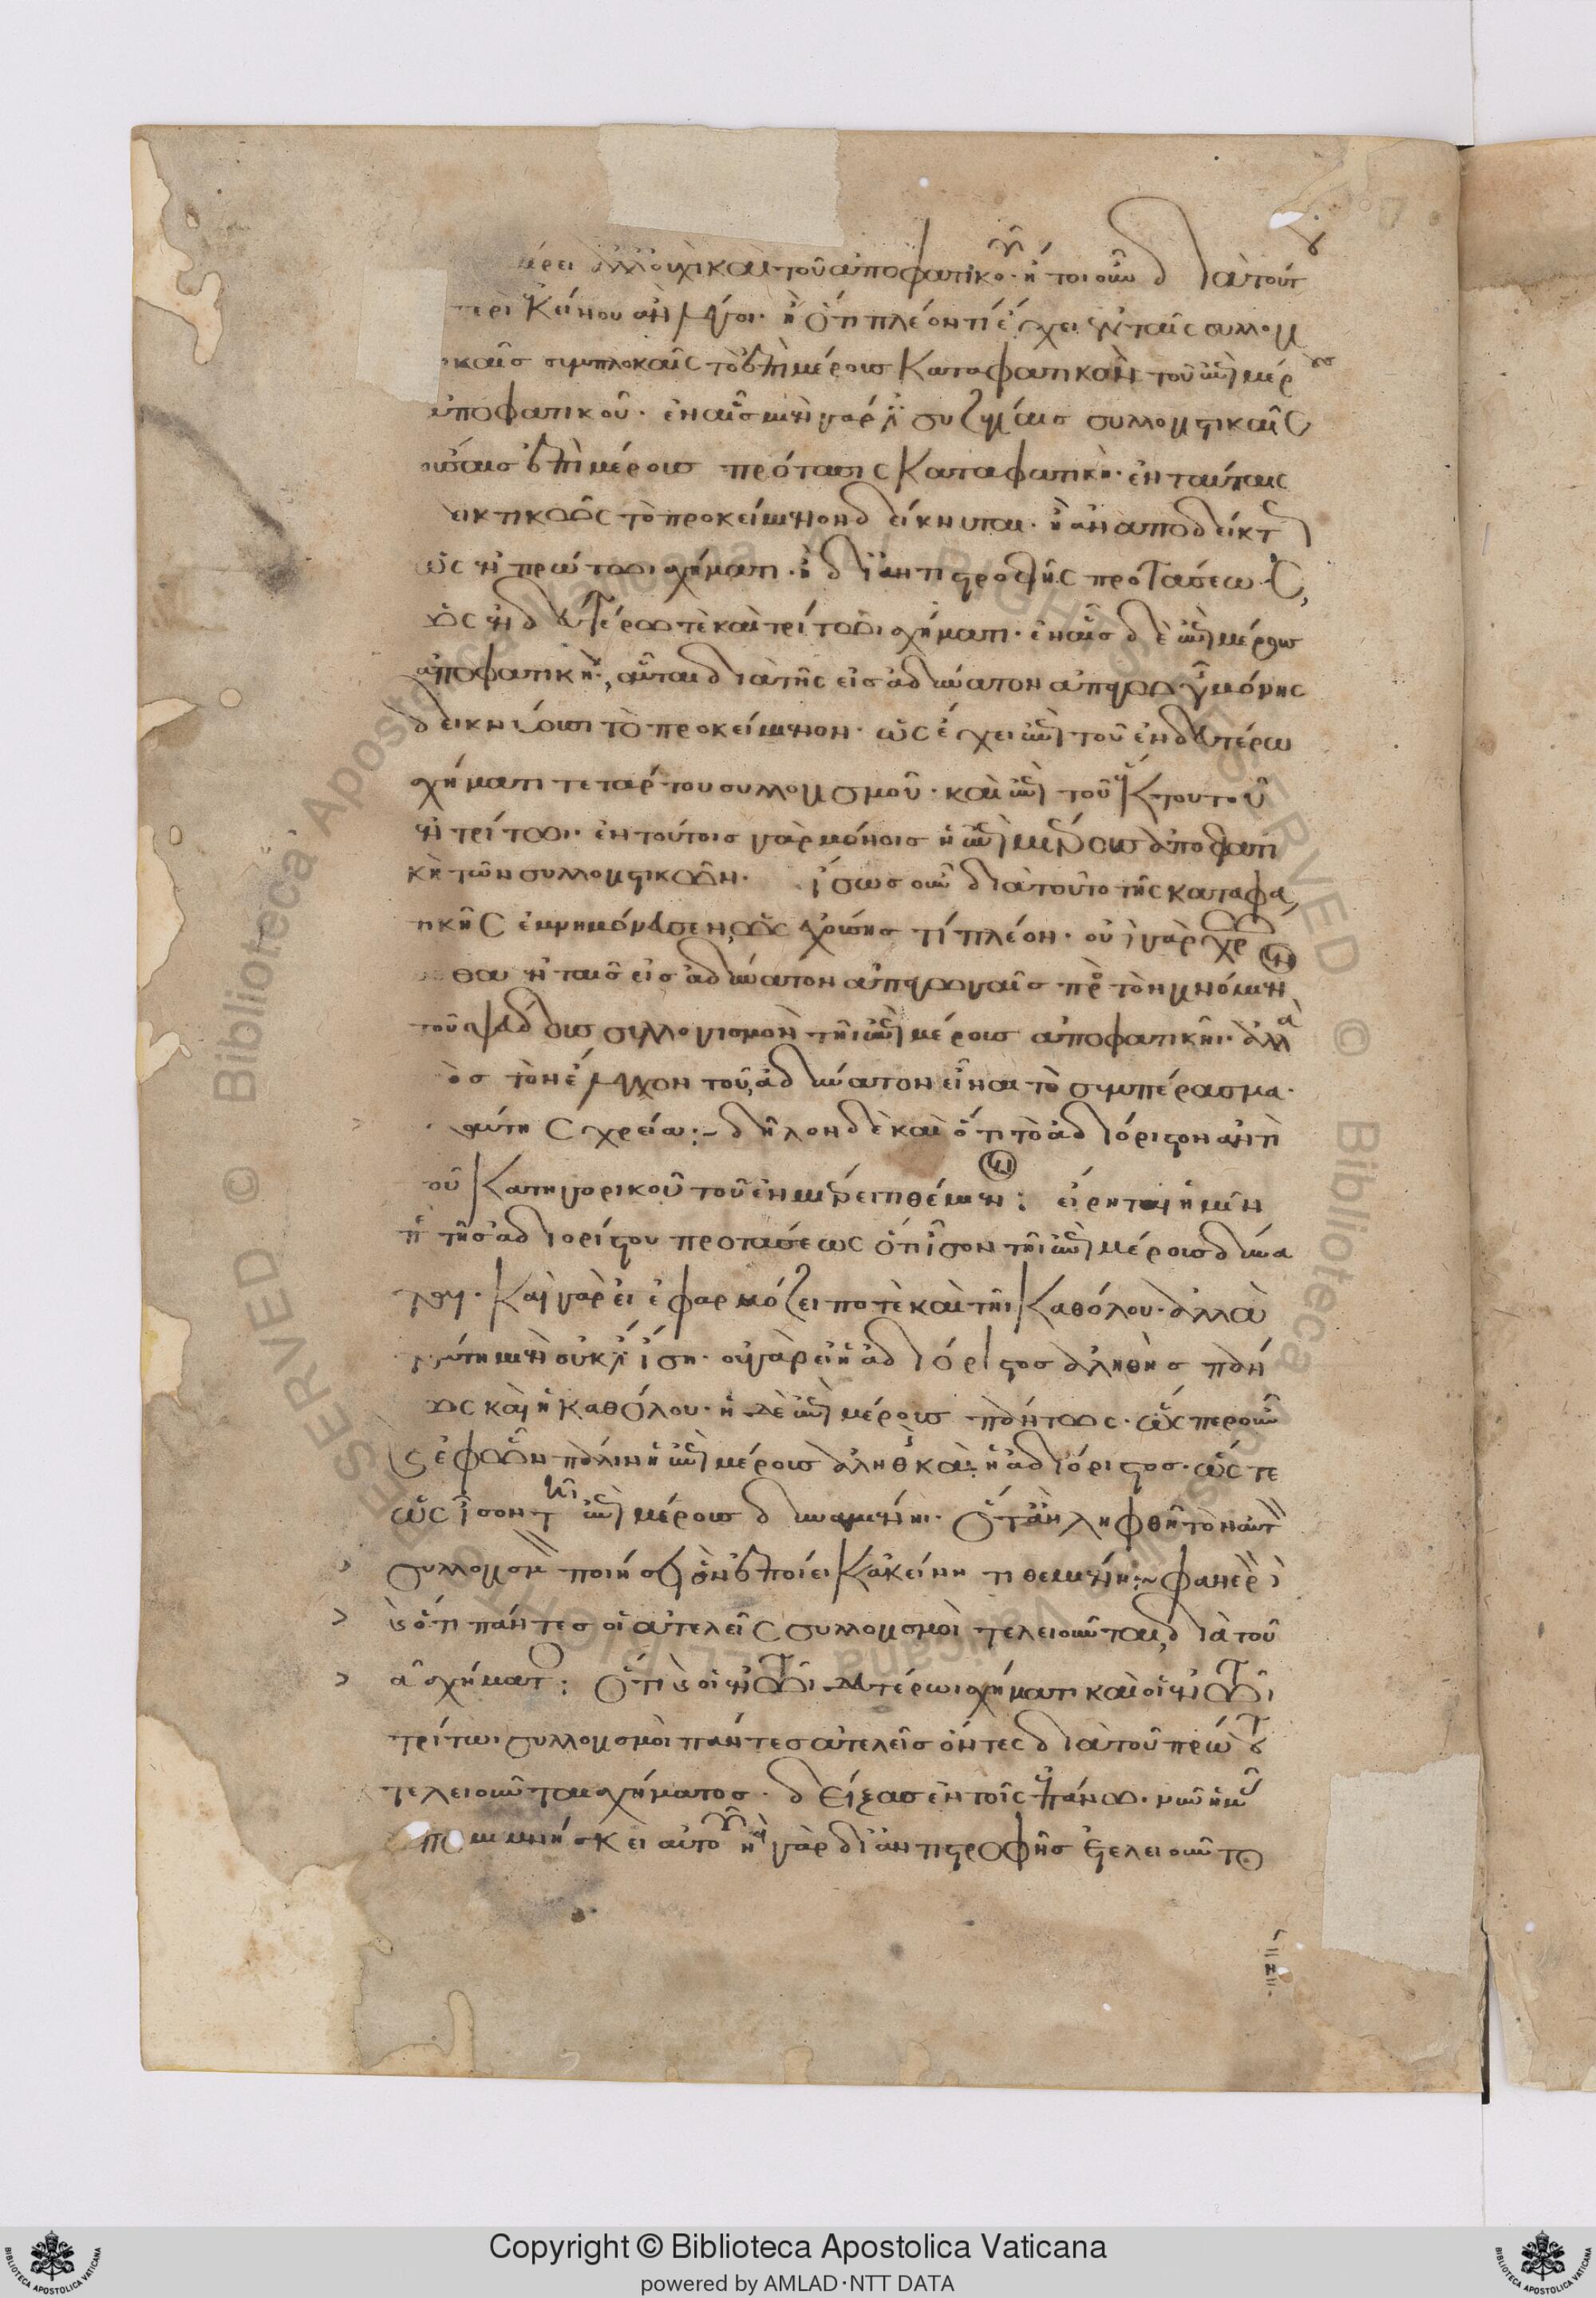 μέρει ἀλλ' οὐχὶ καὶ τοῦ ἀποφατικοῦ. ἤτοι οὖν διὰ τούτου
περὶ κείνου αἰνίττεται. ἢ ὅτι πλέον τι ἔχει ἐν ταῖς συλλογι
καῖς συμπλοκαῖς τὸ ἐπὶ μέρους καταφατικὸν τοῦ ἐπὶ μέρους
ἀποφατικοῦ. ἐν αἷς μὲν γάρ εἰσι συζυγίαις συλλογιστικαῖς
οὔσαις ἐπὶ μέρους πρότασις καταφατικὴ. ἐν ταύταις
δεικτικῶς τὸ προκείμενον δείκνυται. ἢ ἀναποδείκτως
ὡς ἐν πρώτωι σχήματι. ἢ δι' ἀντιστροφῆς προτάσεως
ὡς ἐν δευτέρω τὲ καὶ τρίτωι σχήματι. ἐν αἷς δὲ ἐπὶ μέρους
ἀποφατικὴ, αὗται διὰ τῆς εἰς ἀδύνατον ἀπαγωγῆς μόνης
δεικνύουσι τὸ προκείμενον. ὡς ἔχει ἐπὶ τοῦ ἐν δευτέρω
σχήματι τετάρτου συλλογισμοῦ. καὶ ἐπὶ τοῦ ἕκτου τοῦ
ἐν τρίτωι. ἐν τούτοις γὰρ μόνοις ἡ ἐπὶ μέρους ἀποφατι
κὴ τῶν συλλογιστικῶν. ἴσως οὖν διὰ τοῦτο τῆς καταφα
τικῆς ἐμνημόνευσεν, ὡς ἐχούσης τί πλέον. οὐ γὰρ χρὴ
θαι ἐν ταῖς εἰς ἀδύνατον ἀπαγωγαῖς πρὸς τὸν γινόμενον
τοῦ ψεύδους συλλογισμὸν τῆι ἐπὶ μέρους ἀποφατικῆι. ἀλλὰ
πρὸς τὸν ἔλεγχον τοῦ, ἀδύνατον εἶναι τὸ συμπέρασμα.
αύτης χρεία :– δῆλον δὲ καὶ ὅτι τὸ ἀδιόριστον ἀντὶ
τοῦ κατηγορικοῦ τοῦ ἐν μέρει τιθέμενον: εἴρηται ἡμῖν
περὶ τῆς ἀδιορίστου προτάσεως ὅτι ἴσον τῆι ἐπὶ μέρους δύνα
ται. καὶ γὰρ εἰ ἐφαρμόζει ποτὲ καὶ τῆι καθόλου. ἀλλὰ
ταύτηι μὲν οὐκ ἔστιν ἴση. οὐ γὰρ εἰ ἡ ἀδιόριστος ἀληθὴς πάν
τως καὶ ἡ καθόλου. ἡ δὲ ἐπὶ μέρους πάντως. ὥσπερ οὖν
ἐφ' ὧν πάλιν ἡ ἐπὶ μέρους ἀληθὴς καὶ ἡ ἀδιόριστος. ὥστε
ὡς ἴσον τῆι ἐπὶ μέρους δυναμένηι. ὅταν ληφθῆι τὸν αὐτὸν
συλλογισμὸν ποιήσει ὃν ἐποίει κἀκείνη τιθεμένη :~ φανερὸν
δὲ ὅτι πάντες οἱ ἀτελεῖς συλλογισμοὶ τελειοῦνται, διὰ τοῦ
αʹ σχήματος: ὅτι δὲ οἱ ἐν τῶι δευτέρωι σχήματι καὶ οἱ ἐν τῶι
τρίτωι συλλογισμοὶ πάντες ἀτελεῖς ὄντες διὰ τοῦ πρώτου
τελειοῦνται σχήματος. δείξας ἐν τοῖς ἐπάνω. νῦν ἡμᾶς
ὑπομιμνήσκει αὐτοῦ. ἢ γὰρ δι' ἀντιστροφῆς ἐτελειοῦντο